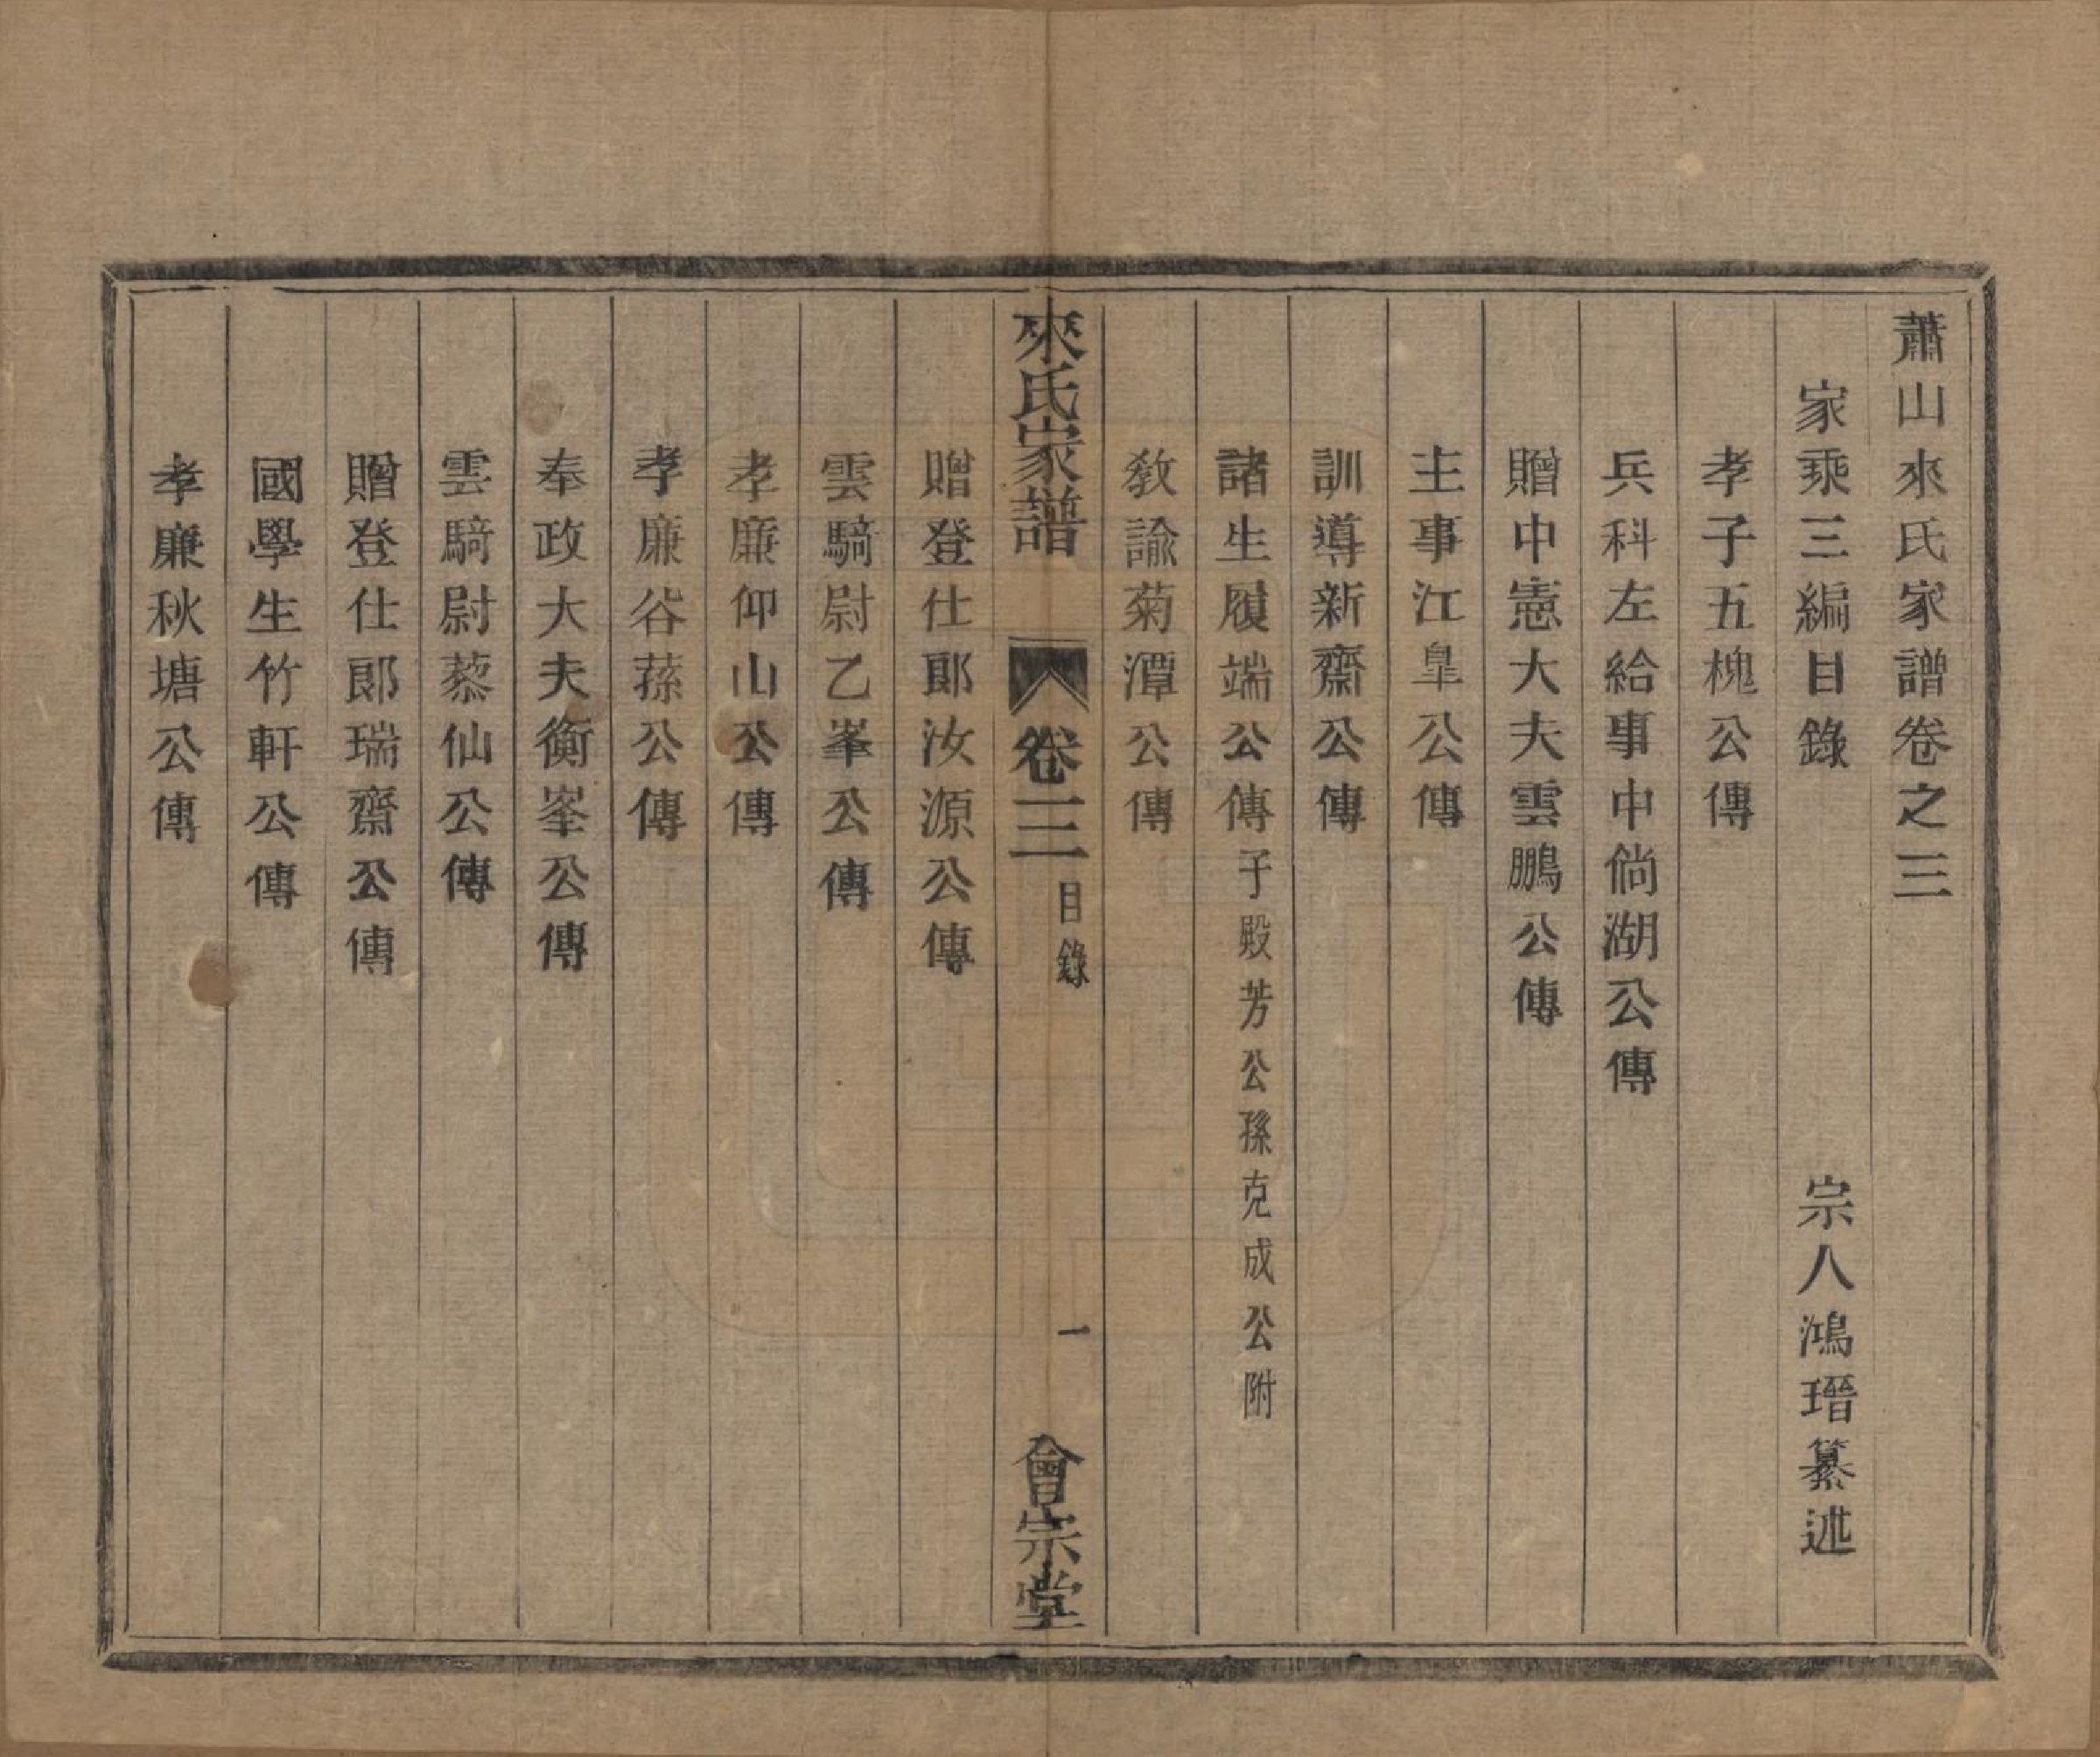 蕭山來氏家譜卷之三
家乘三編目錄 宗人鴻瑨纂述
孝子五槐公傳
兵科左給事中倘湖公傳
贈中憲大夫雲鵬公傳
主事江皐公傳
訓導新齋公傳
諸生履端公傳子殿芳公孫克成公附
敎諭菊潭公傳
來氏家譜 卷三 目錄 一 會宗堂
贈登仕郎汝源公傳
雲騎尉乙峯公傳
孝廉仰山公傳
孝廉谷蓀公傳
奉政大夫衡峯公傳
雲騎尉藜仙公傳
贈登仕郎瑞齋公傳
國學生竹軒公傳
孝廉秋塘公傳